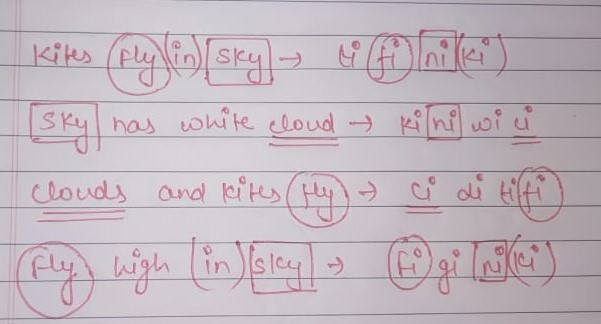 Kites fly (in) sky → ti fi ni (ki)
Sky has white cloud → ki ni wi ci
clouds and kites fly → ci di ti fi
Fly high (in) sky → fi gi ni (ki)